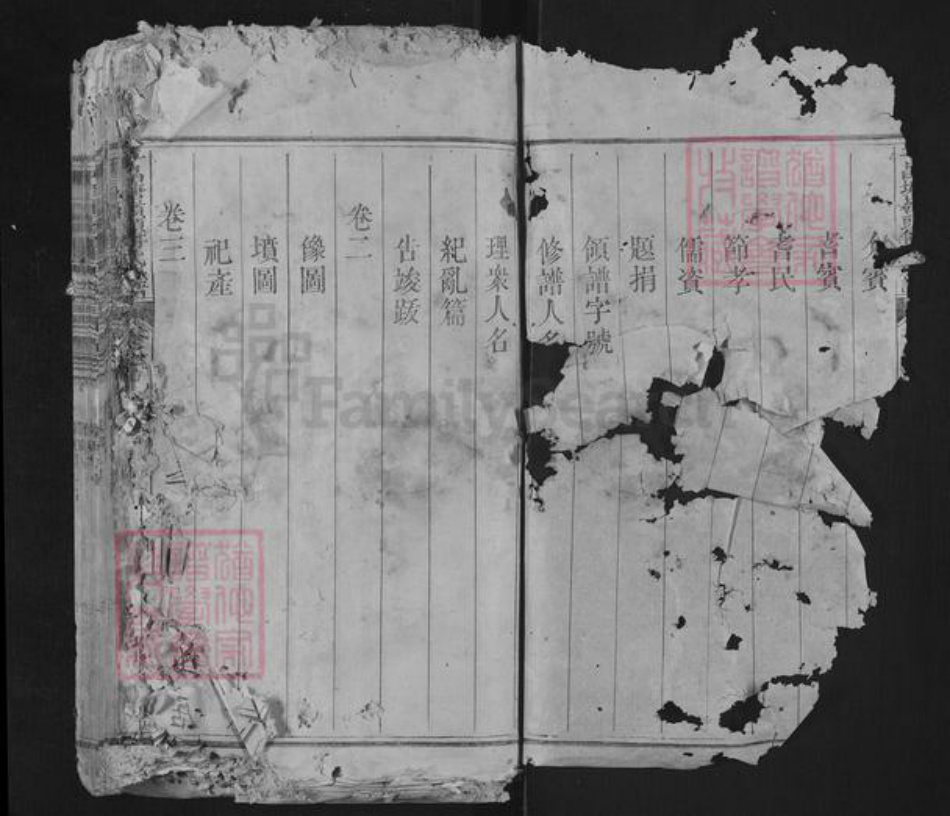 介賓
耆賓
耆民
節孝
儒資
題捐
領譜字號
修譜人名
理衆人名
紀亂篇
告竣跋
卷二
像圖
墳圖
祀產
卷三
FamilySearch